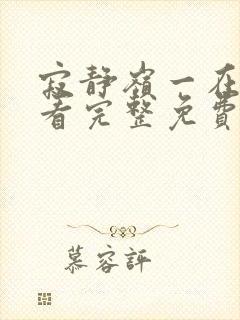 寂静嶺一在
看完整免費
慕容評